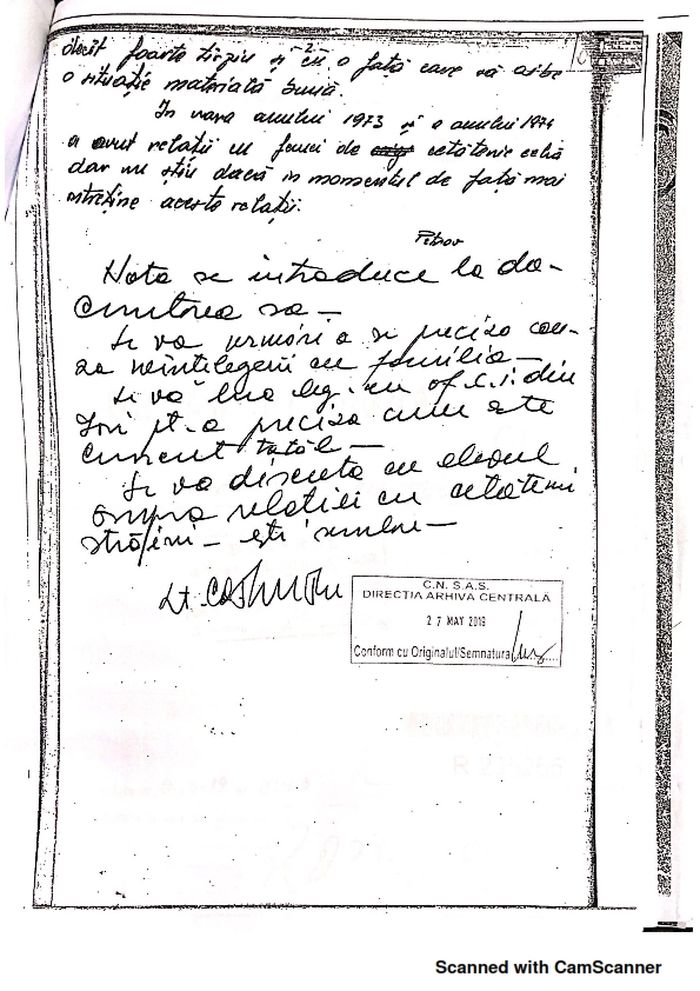 decît foarte tîrziu și cu o fată care să aibe
o situație materială bună.
În vara anului 1973 și a anului 1974
a avut relații cu femei de cetățenie cehă
dar nu știu dacă în momentul de față mai
întreține aceste relații.
Petrov
Nota se introduce la do-
cumentarea sa —
Se va urmări a se preciza cau-
za neînțelegerii cu familia —
Se va lua leg. cu of. C.I. din
pt. a preciza cum este
cunoscut tatăl —
Se va discuta cu elevul
asupra relației cu cetățeni
străini —
Lt.
C.N. S.A.S.
DIRECȚIA ARHIVA CENTRALĂ
27 MAY 2019
Conform cu Originalul/Semnatura
Scanned with CamScanner